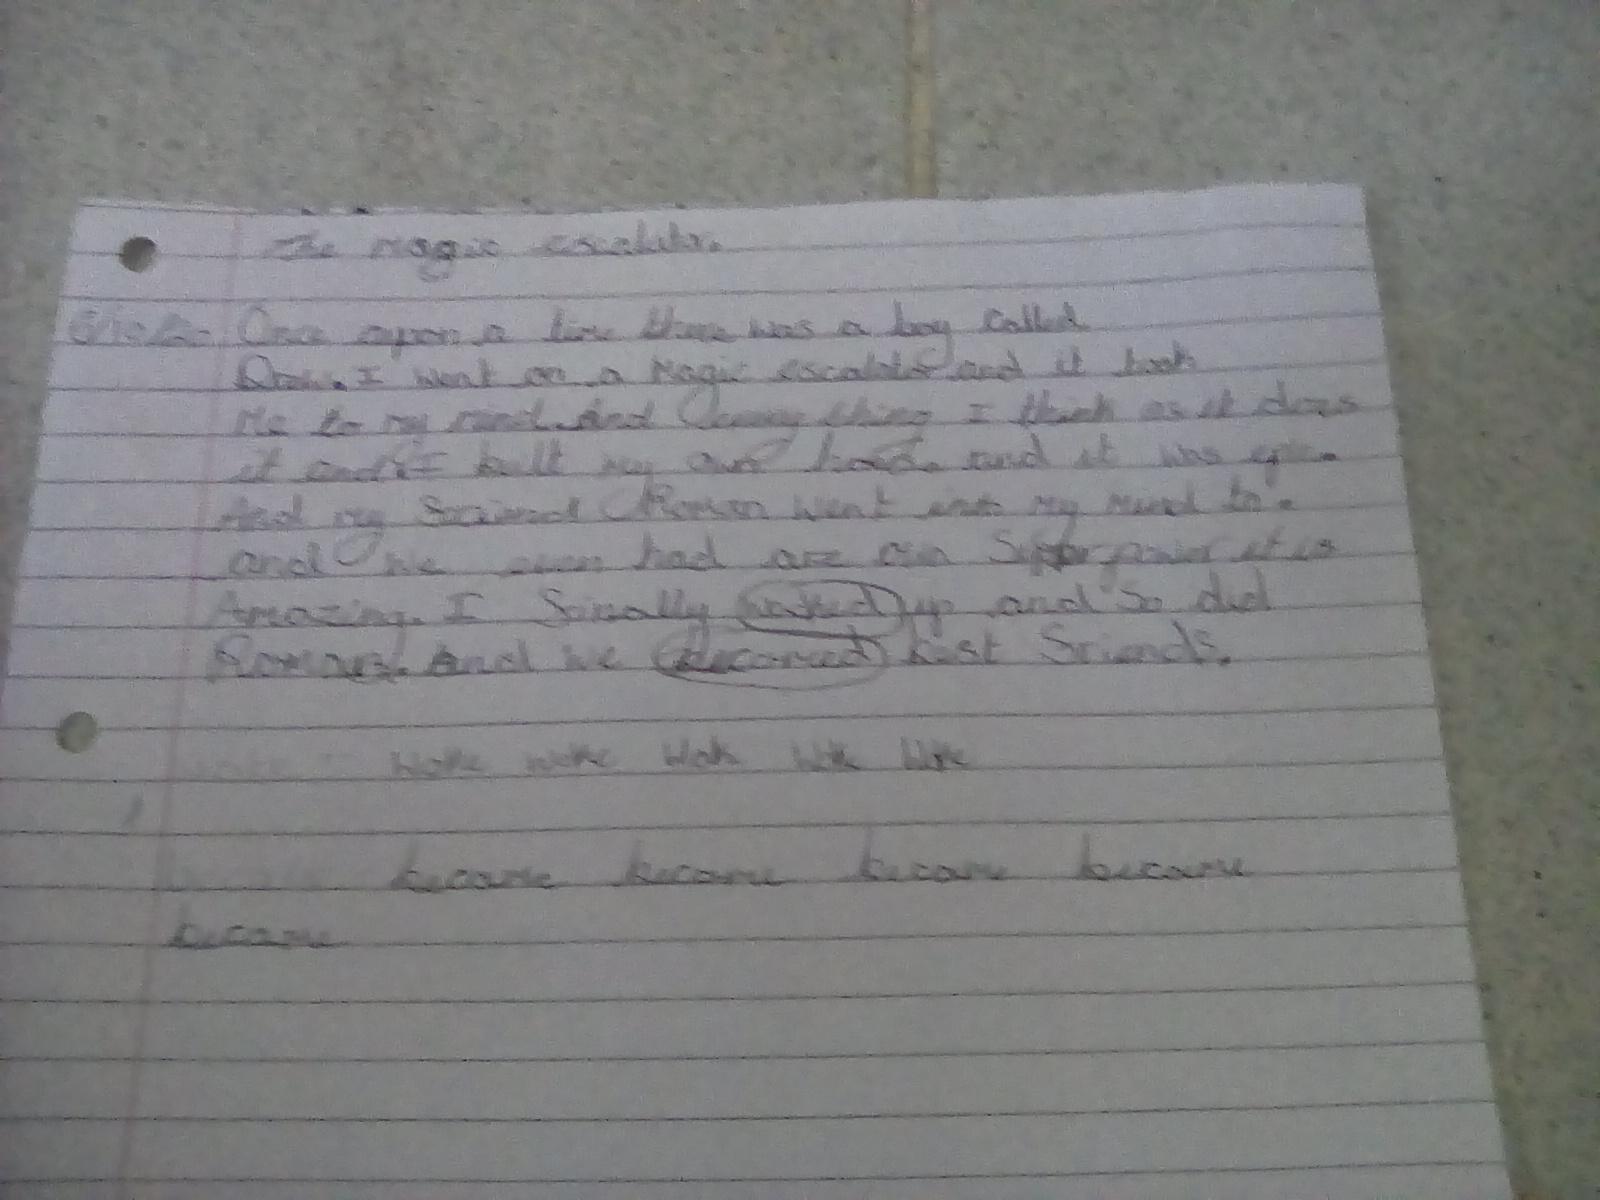 The Magic escalator.
Once apon a time there was a boy called
I went on a Magic escalator and it took
Me to my mind. And every thing I think as it does
it and I built my own and it was epic.
And my Sriend Roman went into my mind to.
and we even had are own Super power it is
Amazing. I Sinally waked up and So did
Roman. And we becamed best Sriends.
woke woke Wok Woke
became became became became
became